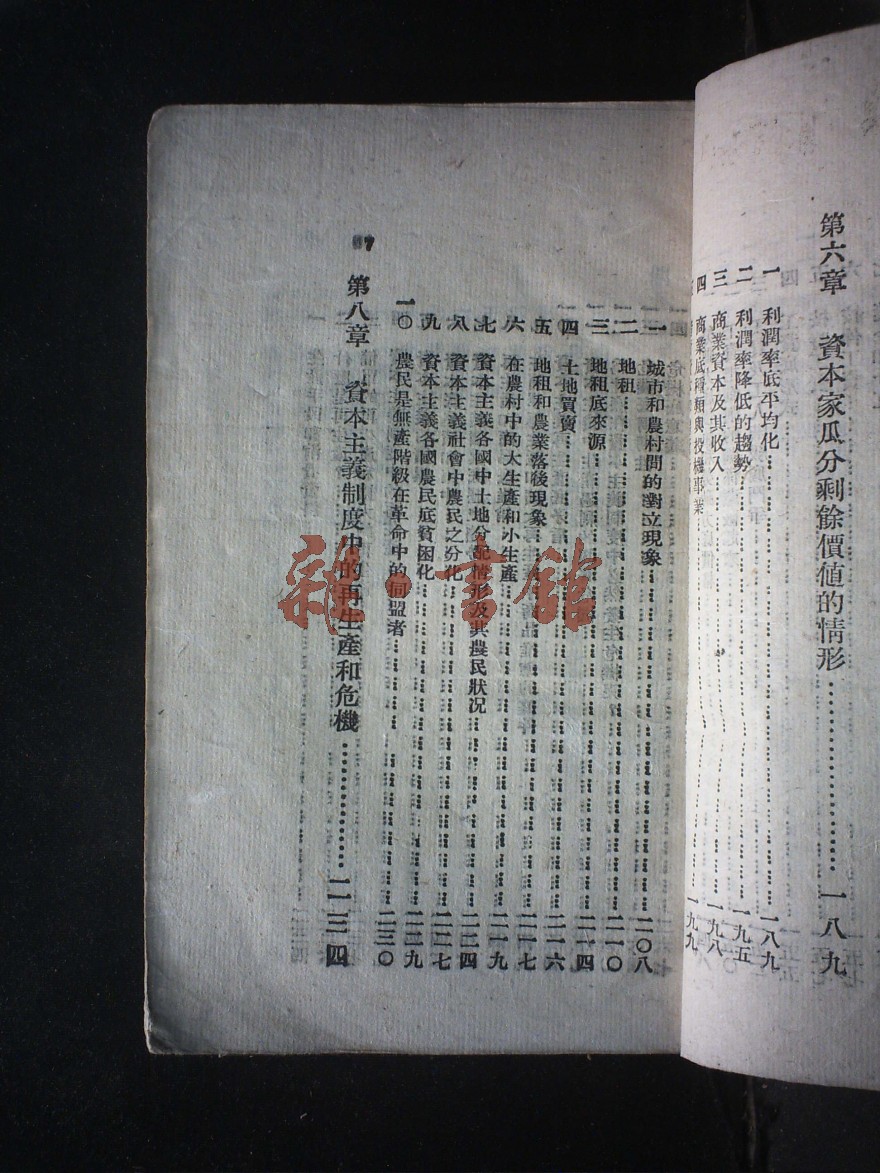 第六章 資本家瓜分剩餘價値的情形……………一八九
一 利潤率底平均化……………一八九
二 利潤率降低的趨勢……………一九五
三 商業資本及其收入……………一九八
四 商業底種類與投機事業……………一九九
一 城市和農村間的對立現象……………二〇八
二 地租……………二一〇
三 地租底來源……………二一四
四 土地買賣……………二一六
五 地租和農業落後現象……………二一七
六 在農村中的大生產和小生產……………二一九
七 資本主義各國中土地分配情形及其農民狀况……………二二四
八 資本主義社會中農民之分化……………二二七
九 資本主義各國農民底貧困化……………二二九
一〇 農民是無產階級在革命中的同盟者……………二三〇
第八章 資本主義制度中的再生產和危機……………二三四
雜·書館